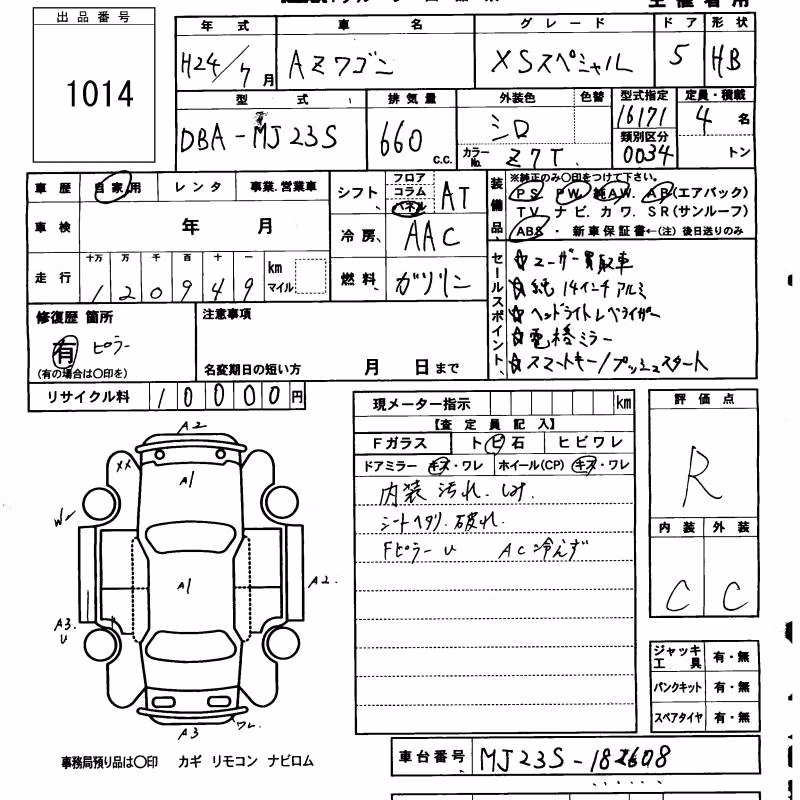 出品番号
1014
年式 車名 グレード ドア 形状
H24/7月 AZワゴン XSスペシャル 5 HB
型式 排気量 外装色 色替 型式指定 定員・積載
DBA-MJ23S 660 c.c. シロ 16171 4名
カラーNo. Z7T. 類別区分 0034 トン
車歴 自家用 レンタ 事業.営業車
車検 年 月
走行 十万 万 千 百 十 一 km マイル
120949
シフト、 フロア コラム パネル AT
冷房、 AAC
燃料 ガソリン
装備品、
※純正のみ○印をつけて下さい。
PS PW 純AW. AB(エアバック)
TV ナビ.カワ.SR(サンルーフ)
ABS・新車保証書←(注)後日送りのみ
セールスポイント、
☆ユーザー買取車
☆純14インチアルミ
☆ヘッドライトレベライザー
☆電格ミラー
☆スマートキー/プッシュスタート
修復歴 箇所
有 ピラー
(有の場合は○印を)
注意事項
名変期日の短い方 月 日まで
リサイクル料 10000円
現メーター指示 km
【査定員記入】
Fガラス トビ石 ヒビワレ
ドアミラー キズ・ワレ ホイール(CP) キズ・ワレ
内装 汚れ.しみ.
シートヘタリ.破れ.
FピラーU AC冷えず
評価点
R
内装 外装
C C
ジャッキ工具 有・無
パンクキット 有・無
スペアタイヤ 有・無
A2
XX
A1
A1
A2.
A3.
U
A3
ワレ.
事務局預り品は○印 カギ リモコン ナビロム
車台番号 MJ23S-182608